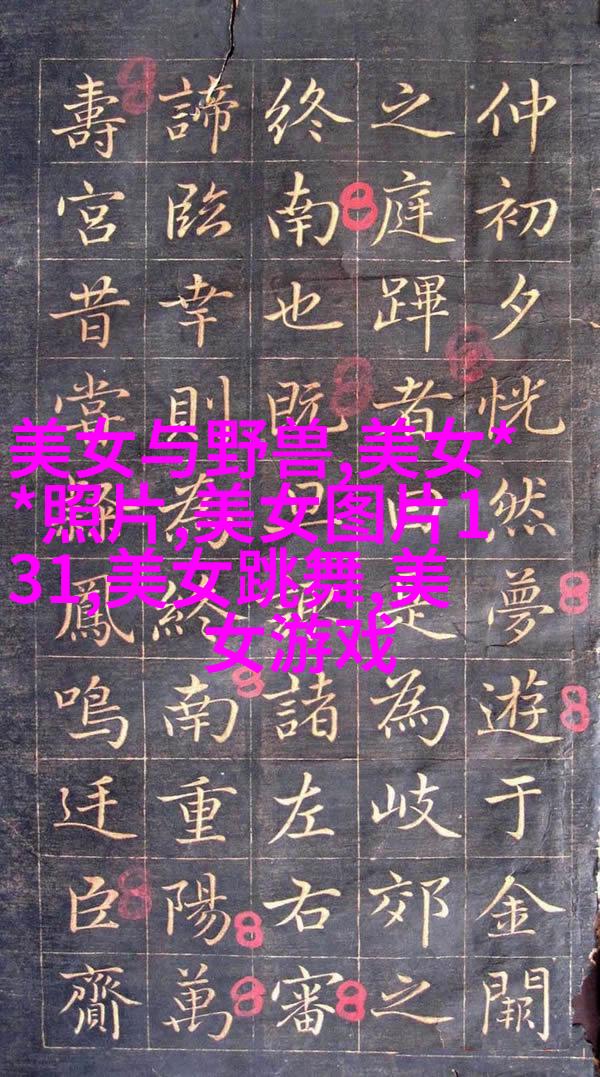 仲初夕恍然夢遊于金闕
之庭蹕者是為岐郊之
終南也既諸左右審
諦臨幸則為終南重陽萬
壽宮昔嘗鳳鳴廷臣齎
美女与野兽,美女*
*照片,美女图片1
31,美女跳舞,美
女游戏